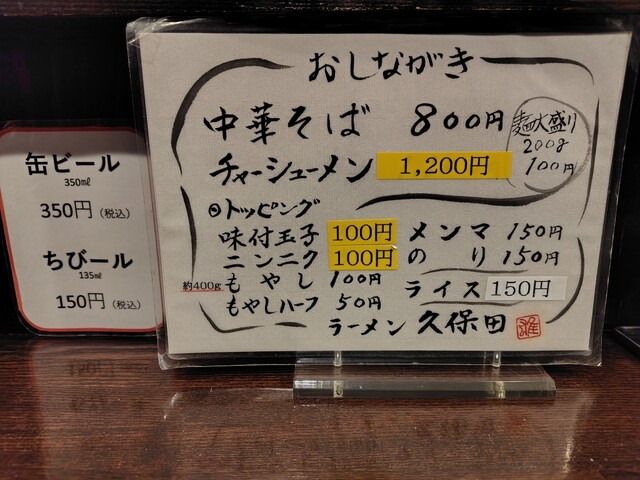 缶ビール
350㎖
350円（税込）
ちびール
135㎖
150円（税込）
おしながき
中華そば 800円
麺大盛り
200g
100円
チャーシューメン 1,200円
◎トッピング
味付玉子 100円 メンマ 150円
ニンニク 100円 のり 150円
約400g もやし 100円 ライス 150円
もやしハーフ 50円
ラーメン 久保田